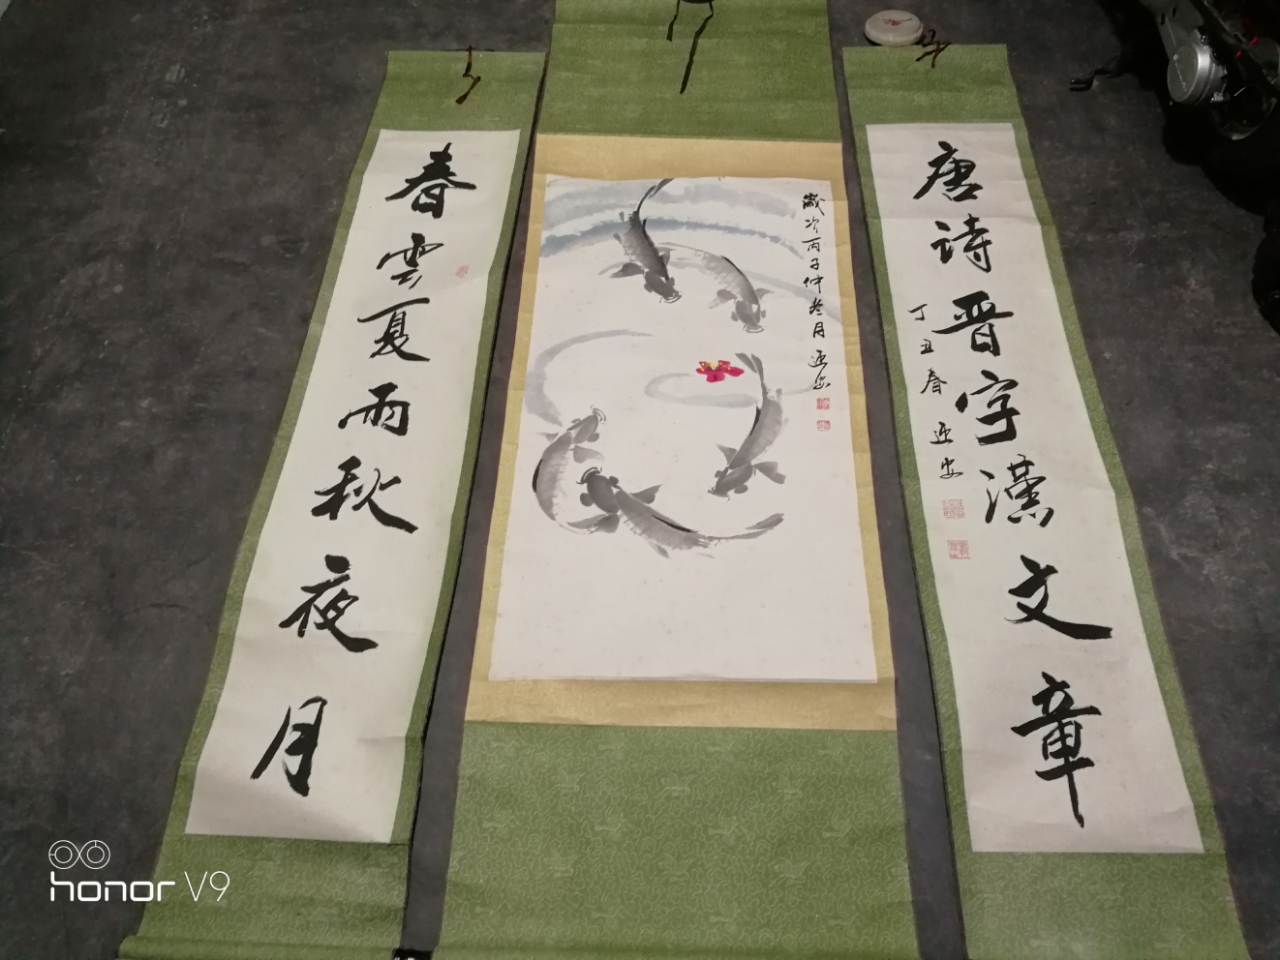 春雲夏雨秋夜月
歲次丙子仲冬月
迎安
唐诗晋字漢文章
丁丑春 迎安
honor V9